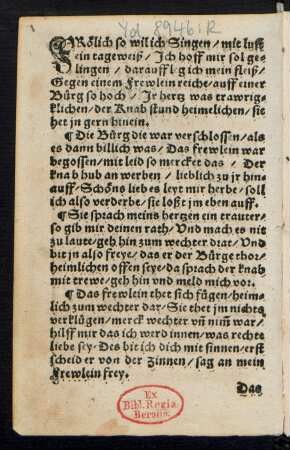 Yd 8946 R
FRölich so wil ich Singen / mit lust
ein tageweiß / Ich hoff mir sol ge-
lingen / darauff leg ich mein fleiß /
Gegen einem Frewlein reiche / auff einer
Bürg so hoch / Ir hertz was trawrig-
klichen / der Knab stund heimelichen / sie
het jn gern hinein.
¶ Die Bürg die war verschlossen / als
es dann billich was / Das frewlein war
begossen / mit leid so mercket das / Der
knab hub an werben / lieblich zu jr hin-
auff / Schöns lieb es leyt mir herbe / soll
ich also verderbe / sie loßt jm eben auff.
¶ Sie sprach meins hertzen ein trauter /
so gib mir deinen rath / Und mach es nit
zu laute / geh hin zum wechter drat / Und
bit jn also freye / das er der Bürge thor /
heimlichen offen seye / da sprach der knab
mit trewe / geh hin vnd meld mich vor.
¶ Das frewlein thet sich fügen / heim-
lich zum wechter dar / Sie thet jm nichts
verklügen / merck wechter vñ nim̃ war /
hilff mir das ich werd innen / was rechte
liebe sey / Des bit ich dich mit sinnen / erst
scheid er von der zinnen / sag an mein
Frewlein frey.
Das
Ex
Bibl. Regia
Berolin.